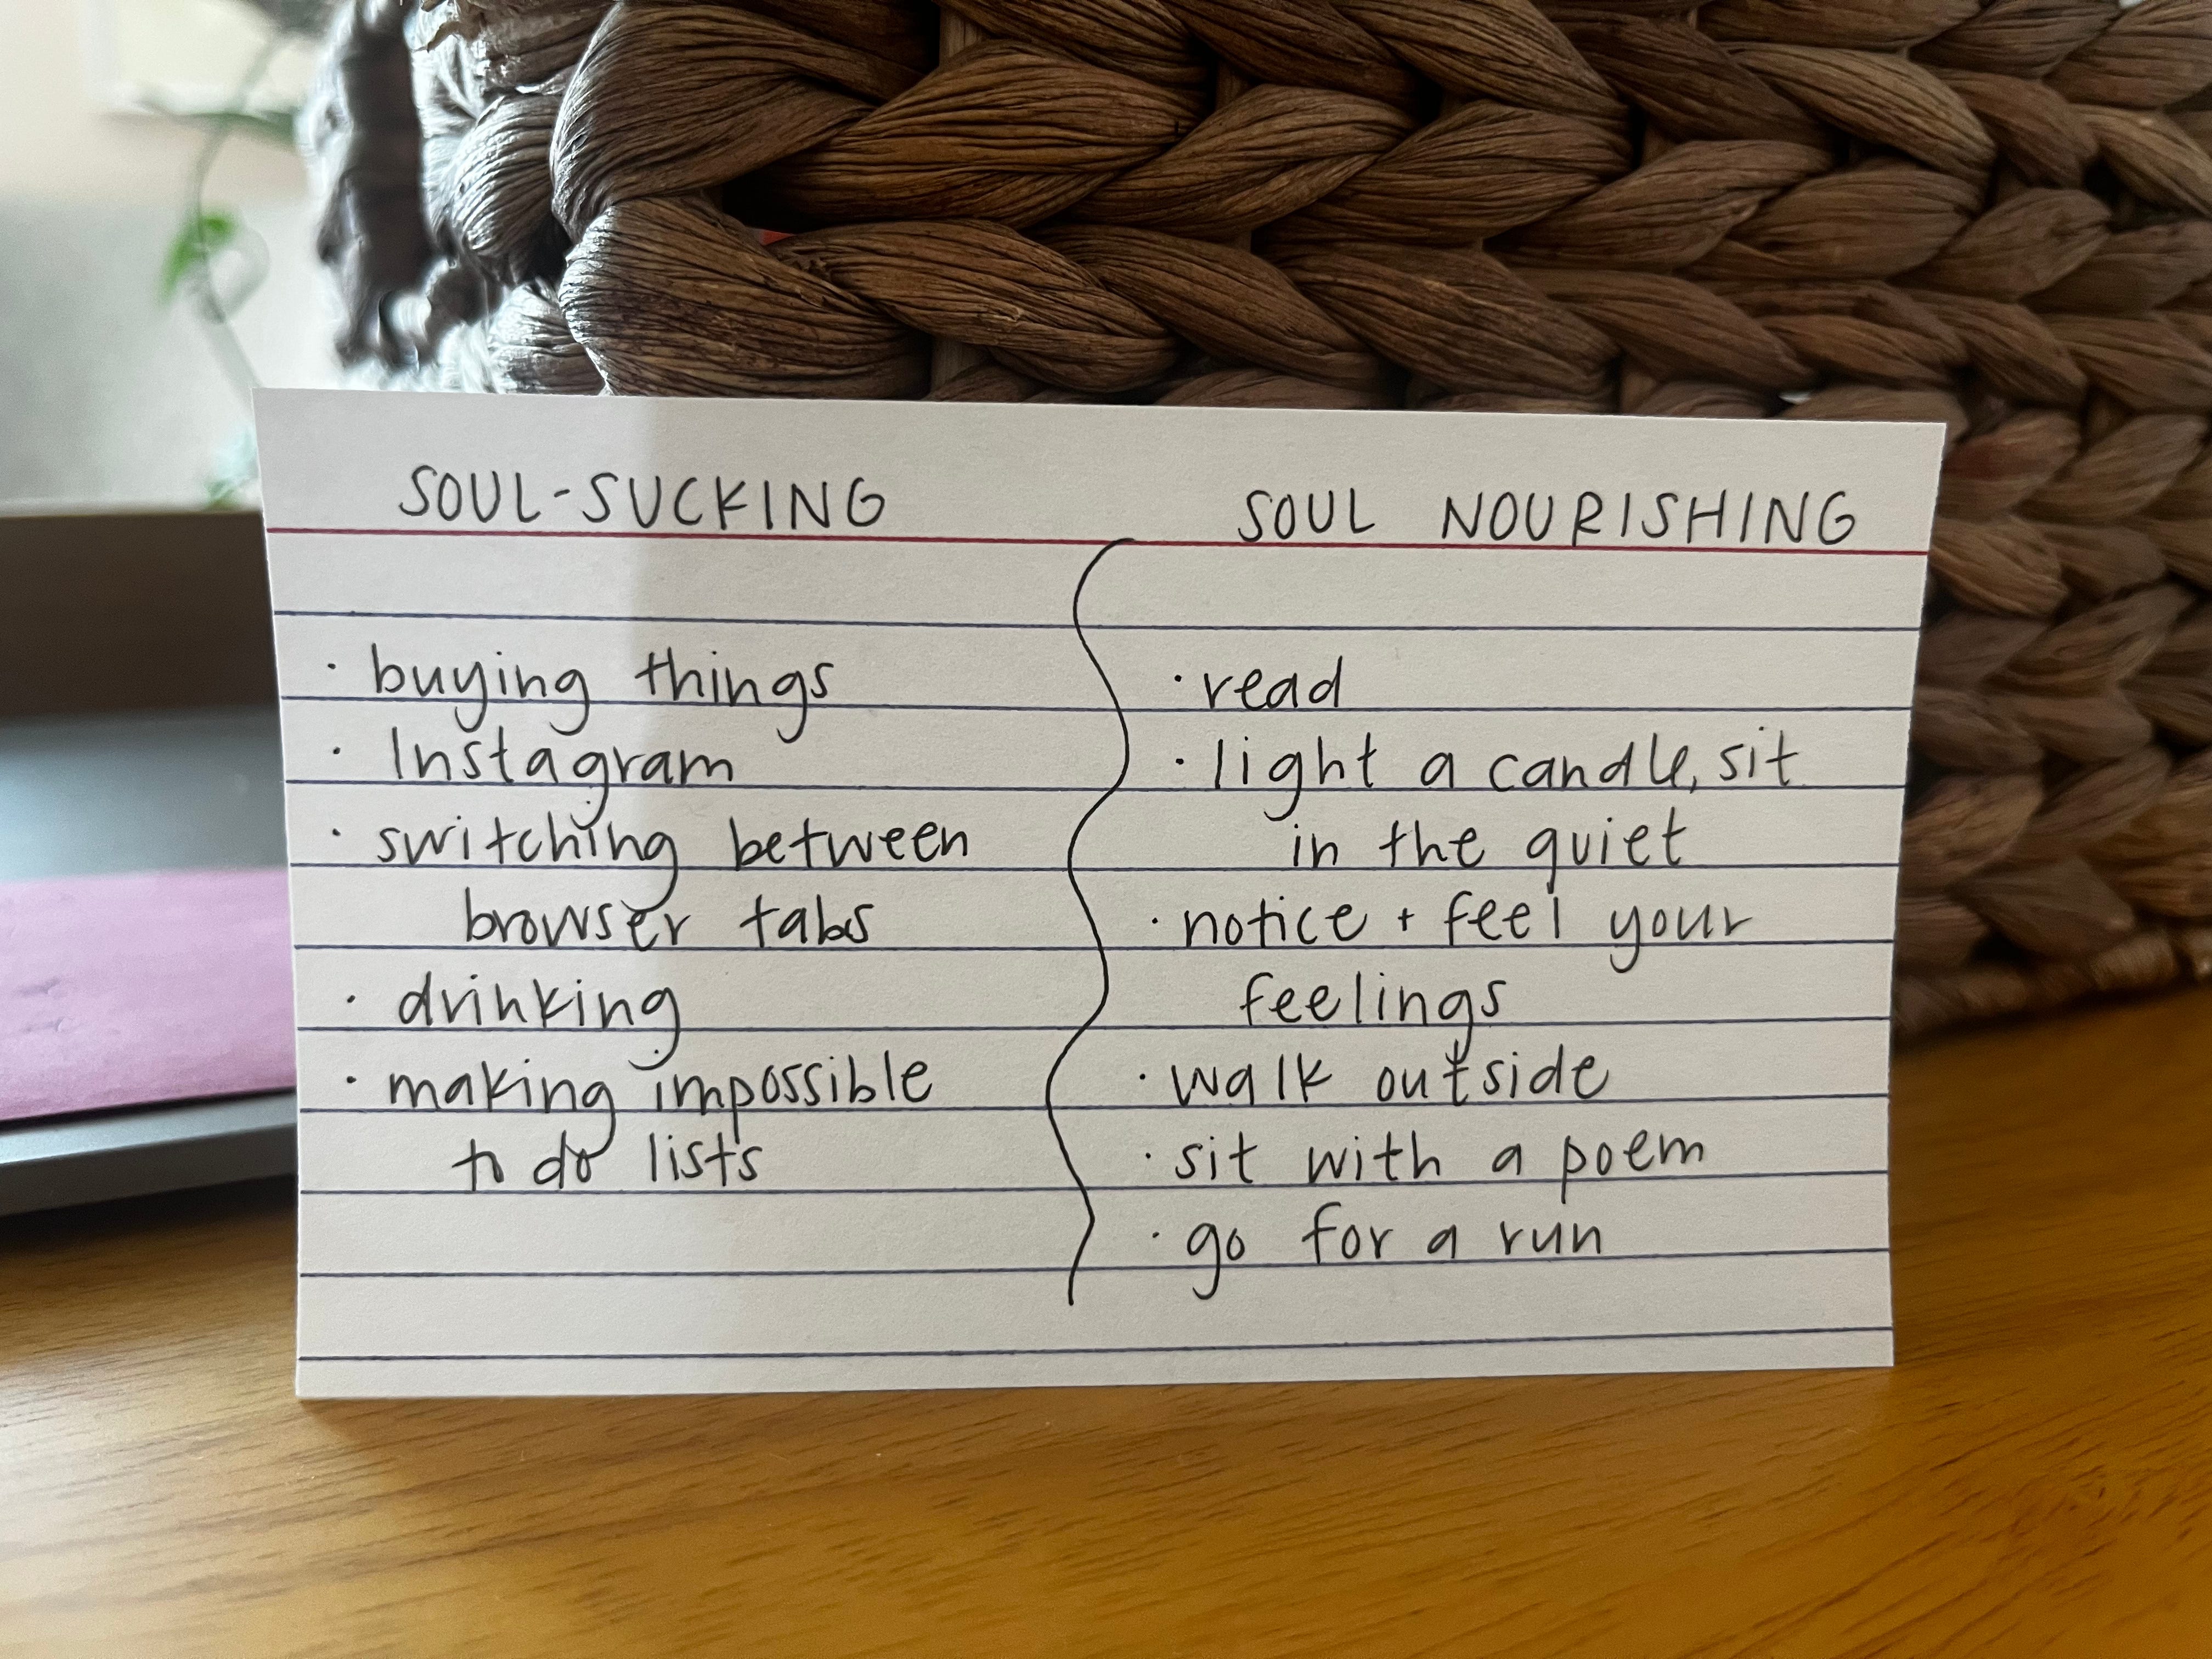 SOUL-SUCKING
· buying things
· Instagram
· switching between
browser tabs
· drinking
· making impossible
to do lists
SOUL NOURISHING
· read
· light a candle, sit
in the quiet
· notice + feel your
feelings
· walk outside
· sit with a poem
· go for a run